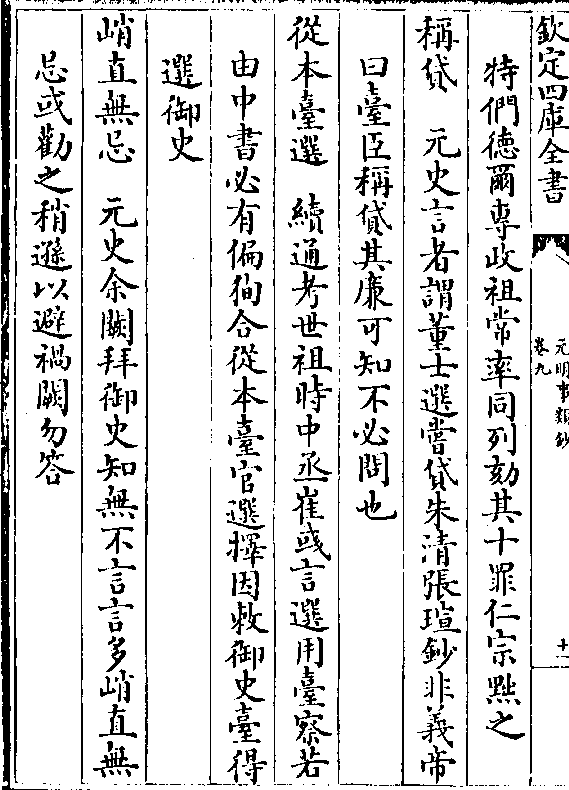 欽定四庫全書
元明事類鈔
卷九
十一
特們德爾專政祖常率同列劾其十罪仁宗黜之
稱貸　元史言者謂董士選嘗貸朱清張瑄鈔非義帝
曰臺臣稱貸其廉可知不必問也
從本臺選　續通考世祖時中丞崔彧言選用臺察若
由中書必有偏徇合從本臺官選擇因敕御史臺得
選御史
峭直無忌　元史余闕拜御史知無不言言多峭直無
忌或勸之稍遜以避禍闕勿答